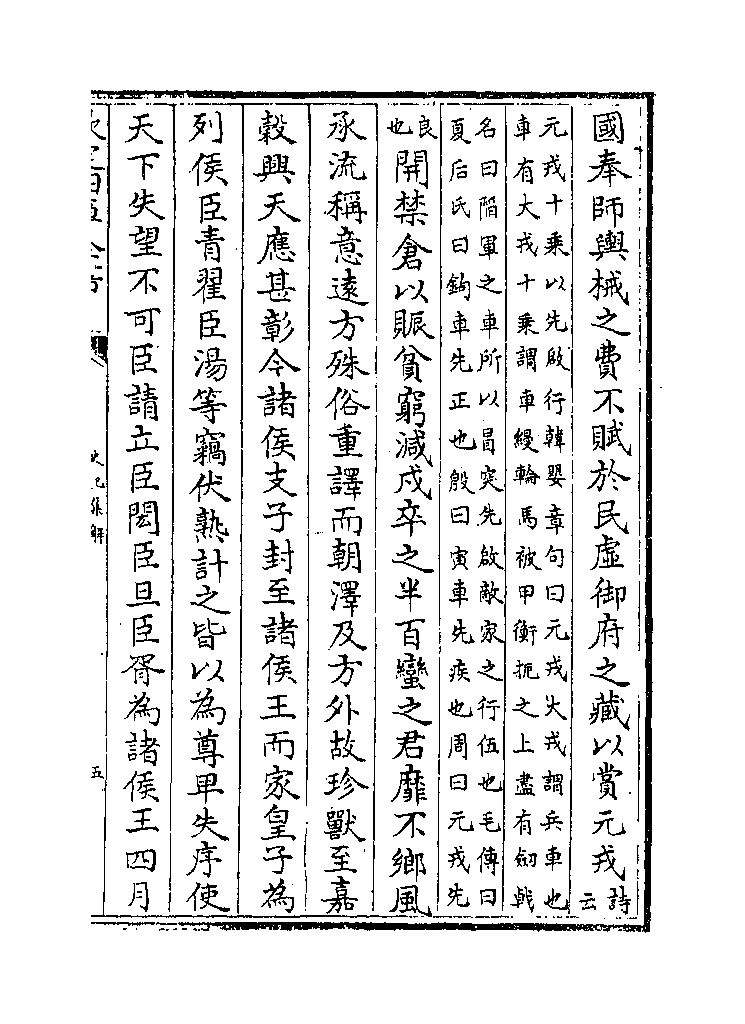 國奉師輿械之費不賦於民虛御府之藏以賞元戎詩云
元戎十乘以先啟行韓嬰章句曰元戎大戎謂兵車也
車有大戎十乘謂車縵輪馬被甲衡扼之上盡有劔戟
名曰陷軍之車所以冒突先啟敵家之行伍也毛傳曰
夏后氏曰鉤車先正也殷曰寅車先疾也周曰元戎先
良也開禁倉以賑貧窮減戍卒之半百蠻之君靡不鄉風
承流稱意遠方殊俗重譯而朝澤及方外故珍獸至嘉
榖興天應甚彰今諸侯支子封至諸侯王而家皇子為
列侯臣青翟臣湯等竊伏熟計之皆以為尊卑失序使
天下失望不可臣請立臣閎臣旦臣胥為諸侯王四月
史記集解 五